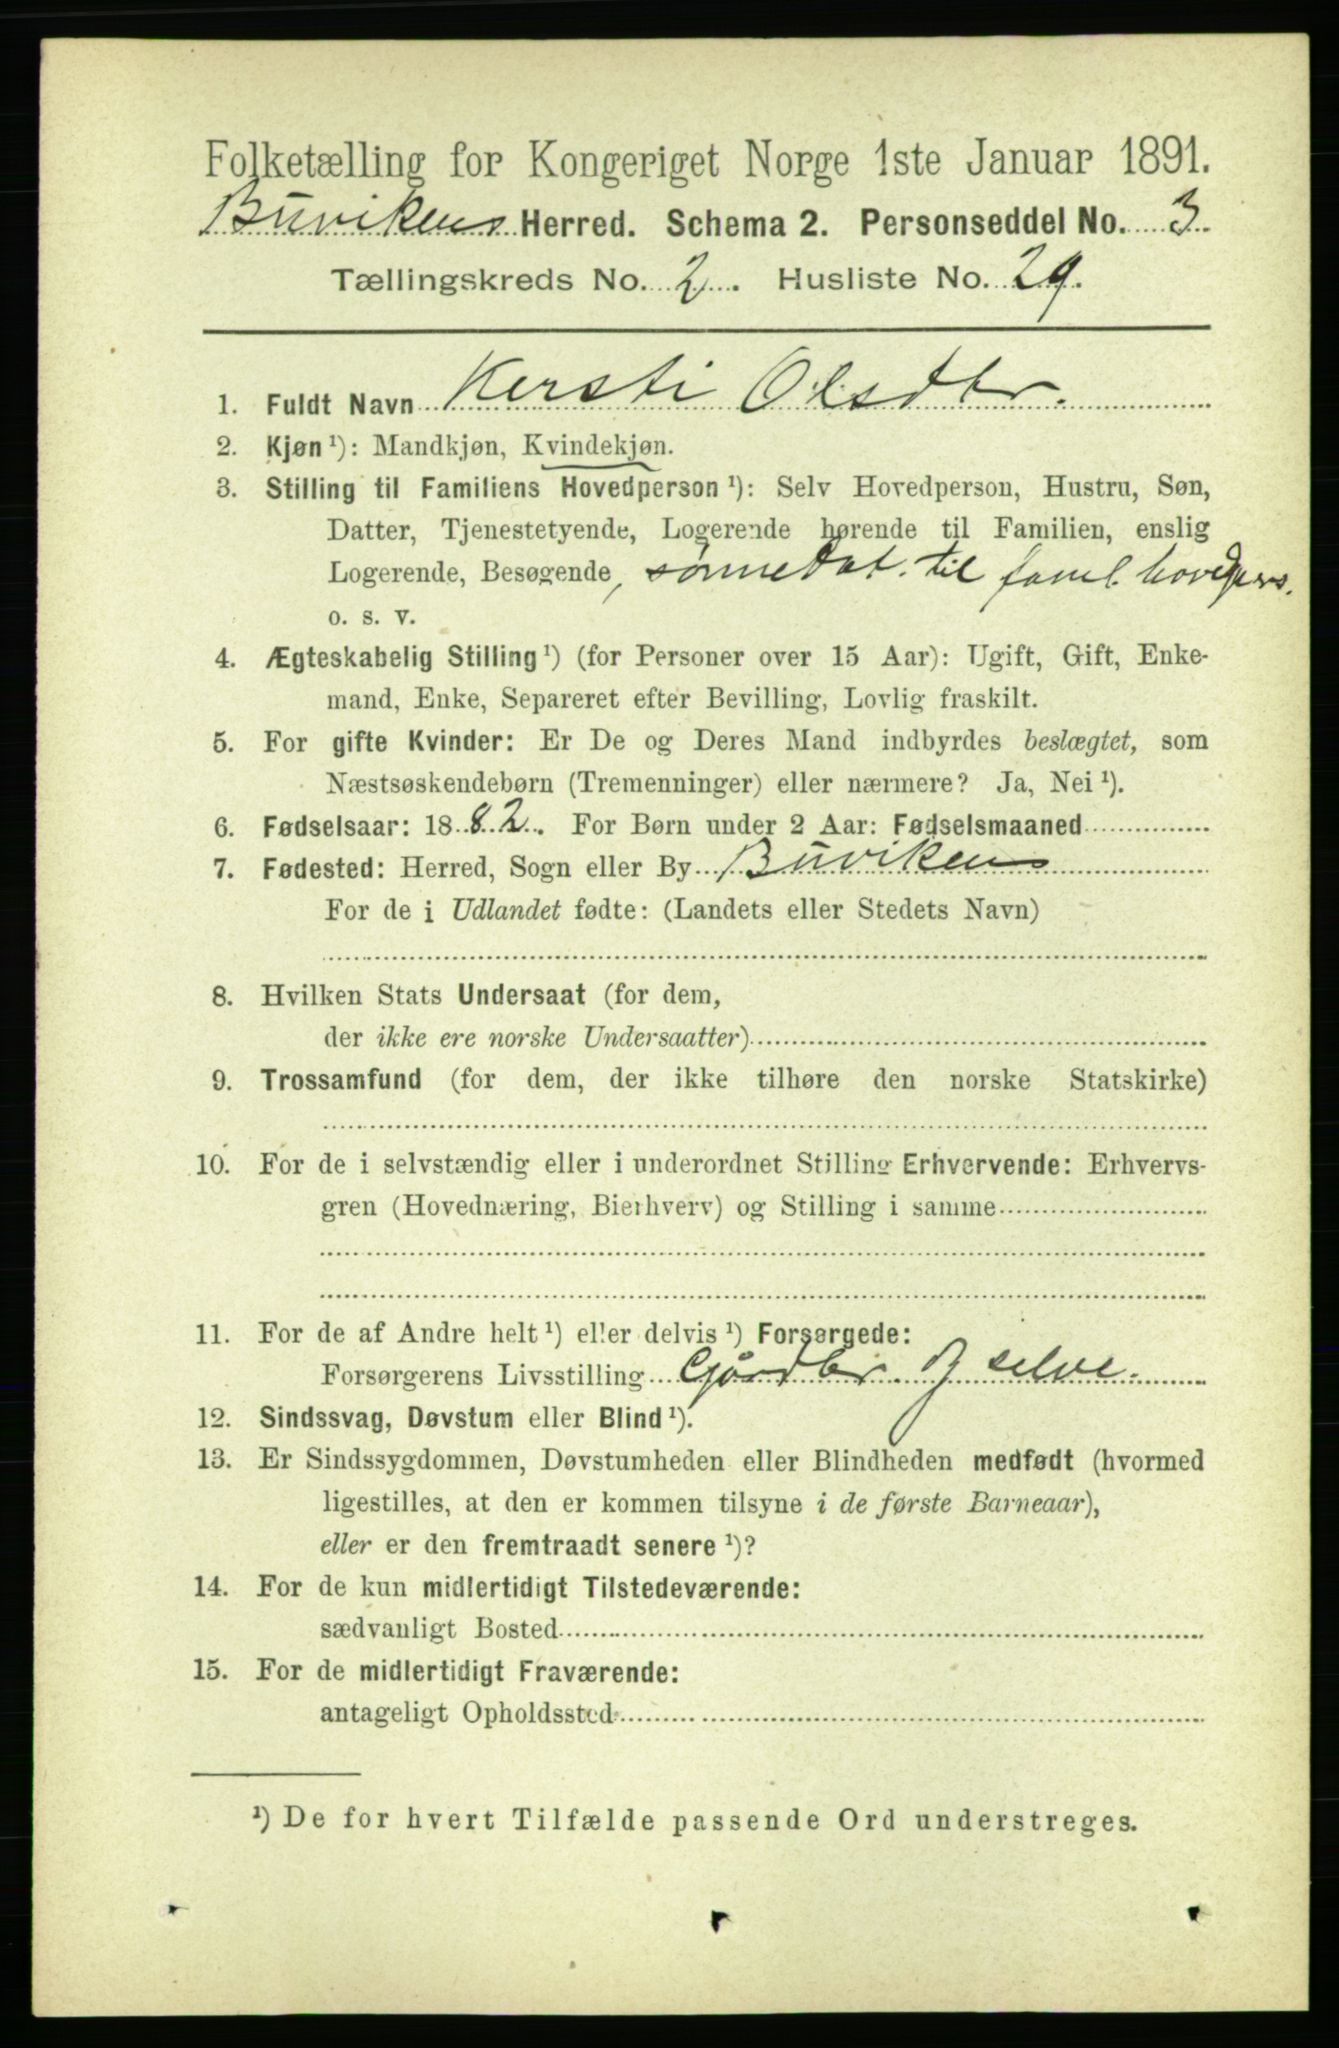 Folketælling for Kongeriget Norge 1ste Januar 1891.
Buvikens Herred. Schema 2. Personseddel No. 3
Tællingskreds No. 2. Husliste No. 29.
1. Fuldt Navn Kersti Olsdtr.
2. Kjøn¹): Mandkjøn, Kvindekjøn.
3. Stilling til Familiens Hovedperson¹): Selv Hovedperson, Hustru, Søn,
Datter, Tjenestetyende, Logerende hørende til Familien, enslig
Logerende, Besøgende, sønnedat. til faml. hovedpers.
o. s. v.
4. Ægteskabelig Stilling¹) (for Personer over 15 Aar): Ugift, Gift, Enke-
mand, Enke, Separeret efter Bevilling, Lovlig fraskilt.
5. For gifte Kvinder: Er De og Deres Mand indbyrdes beslægtet, som
Næstsøskendebørn (Tremenninger) eller nærmere? Ja, Nei¹).
6. Fødselsaar: 1882. For Børn under 2 Aar: Fødselsmaaned
7. Fødested: Herred, Sogn eller By Buviken
For de i Udlandet fødte: (Landets eller Stedets Navn)
8. Hvilken Stats Undersaat (for dem,
der ikke ere norske Undersaatter)
9. Trossamfund (for dem, der ikke tilhøre den norske Statskirke)
10. For de i selvstændig eller i underordnet Stilling Erhvervende: Erhvervs-
gren (Hovednæring, Bierhverv) og Stilling i samme
11. For de af Andre helt¹) eller delvis¹) Forsørgede:
Forsørgerens Livsstilling Gårdbr. selve.
12. Sindssvag, Døvstum eller Blind¹).
13. Er Sindssygdommen, Døvstumheden eller Blindheden medfødt (hvormed
ligestilles, at den er kommen tilsyne i de første Barneaar),
eller er den fremtraadt senere¹)?
14. For de kun midlertidigt Tilstedeværende:
sædvanligt Bosted
15. For de midlertidigt Fraværende:
antageligt Opholdssted
¹) De for hvert Tilfælde passende Ord understreges.